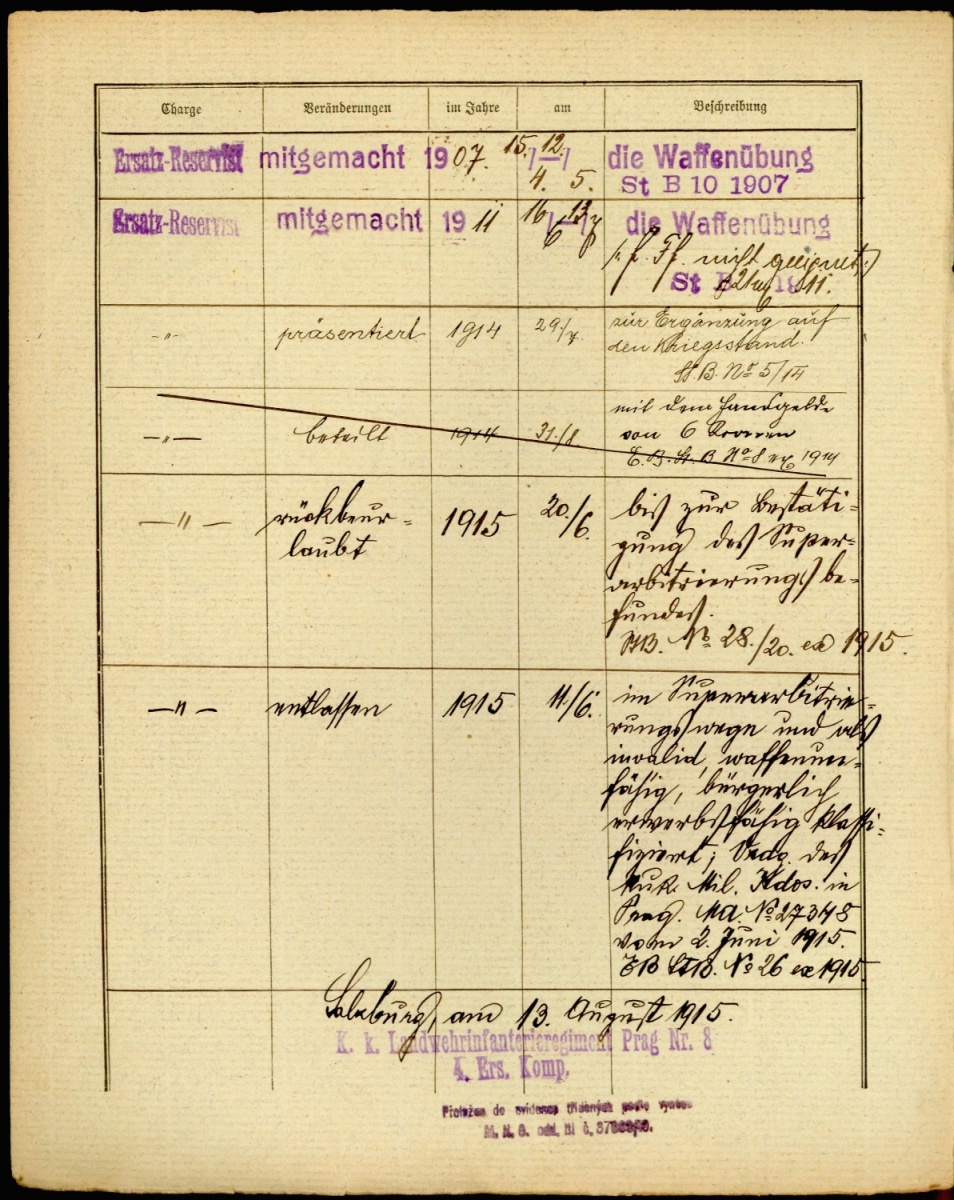 Charge Veränderungen im Jahre am Beschreibung
Ersatz-Reservist mitgemacht 1907. 15./4. 12./5. die Waffenübung
St B 10 1907
Ersatz-Reservist mitgemacht 1911 16/6 13/7 die Waffenübung
nicht geeignet
St B 11.
-"- präsentiert 1914 29./7. zur Ergänzung auf
den Kriegsstand.
St. B. No 5/14
-"- beteilt 1914 31./8. mit dem Handgelde
von 6 Kronen
E. B. St. B No 8 ex 1914
-"- rückbeur-
laubt 1915 20./6. bis zur Bestäti-
gung des Super-
arbitrierungsbe-
fundes.
StB. No 28./20. ex 1915.
-"- entlassen 1915 11./6. im Superarbitrie-
rungswege und als
invalid, waffenun-
fähig, bürgerlich
erwerbsfähig klassi-
fiziert; des
k.u.k. Mil. Kdos. in
Prag. MA. No 27348
vom 2. Juni 1915.
EB StB. No 26 ex 1915
Salzburg, am 13. August 1915.
K. k. Landwehrinfanterieregiment Prag Nr. 8
4. Ers. Komp.
Přeložen do evidence tříděných podle výnosu
M. N. O. odd. III č.